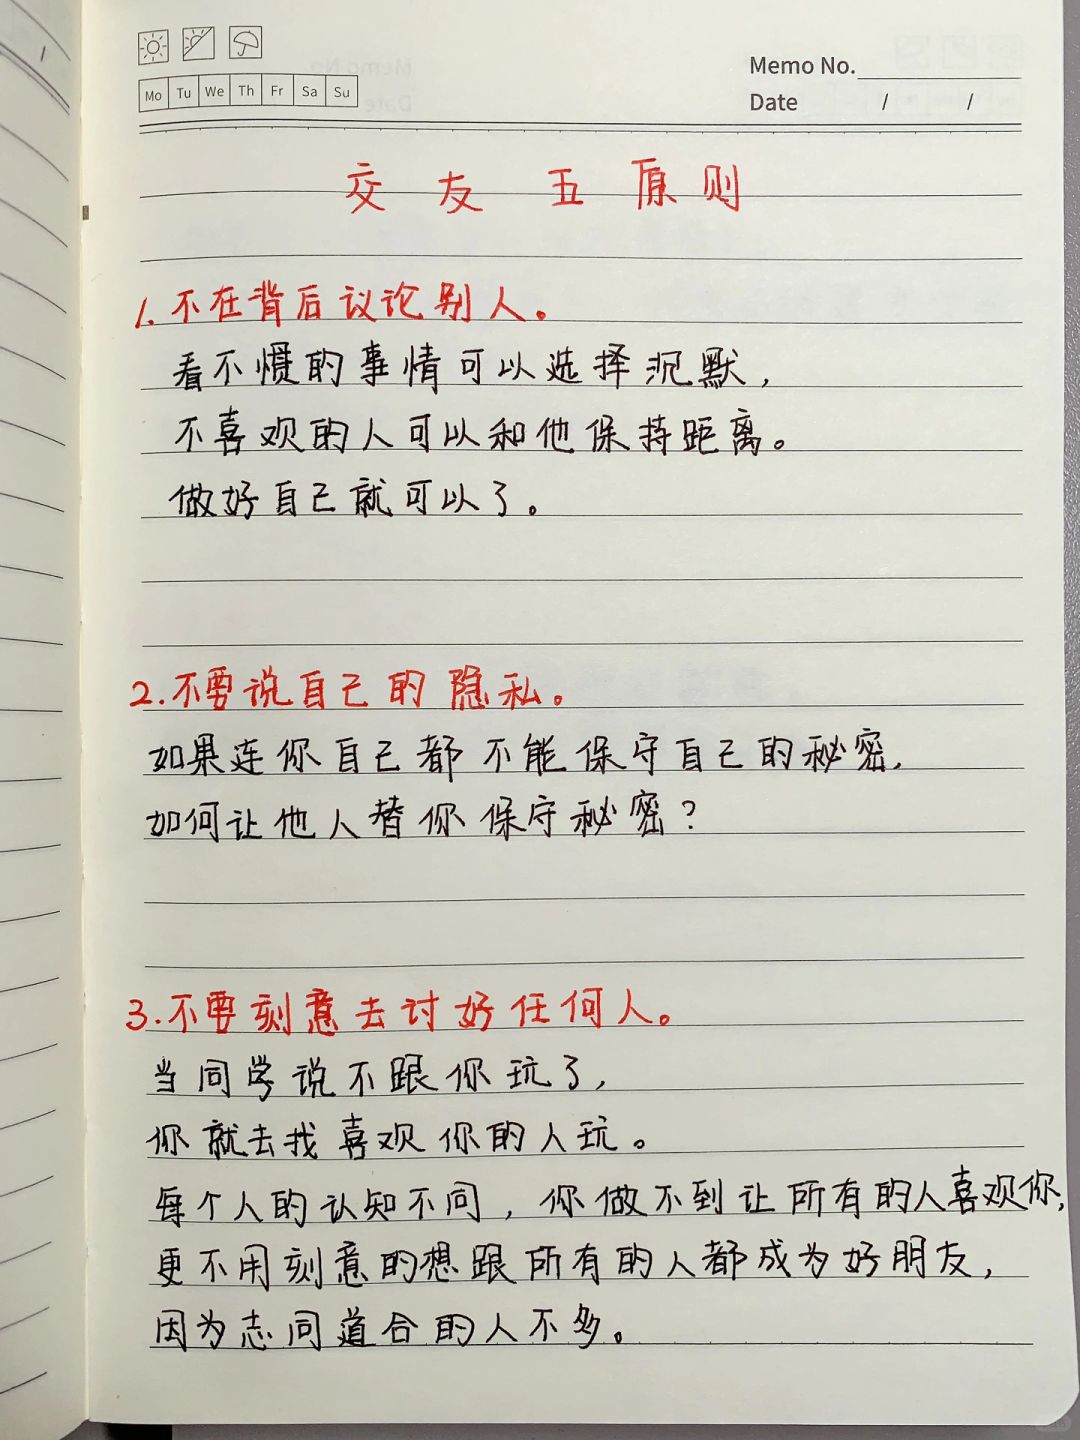 Memo No.
Mo Tu We Th Fr Sa Su
Date / /
交友五原则
1.不在背后议论别人。
看不惯的事情可以选择沉默，
不喜欢的人可以和他保持距离。
做好自己就可以了。
2.不要说自己的隐私。
如果连你自己都不能保守自己的秘密，
如何让他人替你保守秘密？
3.不要刻意去讨好任何人。
当同学说不跟你玩了，
你就去找喜欢你的人玩。
每个人的认知不同，你做不到让所有的人喜欢你，
更不用刻意的想跟所有的人都成为好朋友，
因为志同道合的人不多。